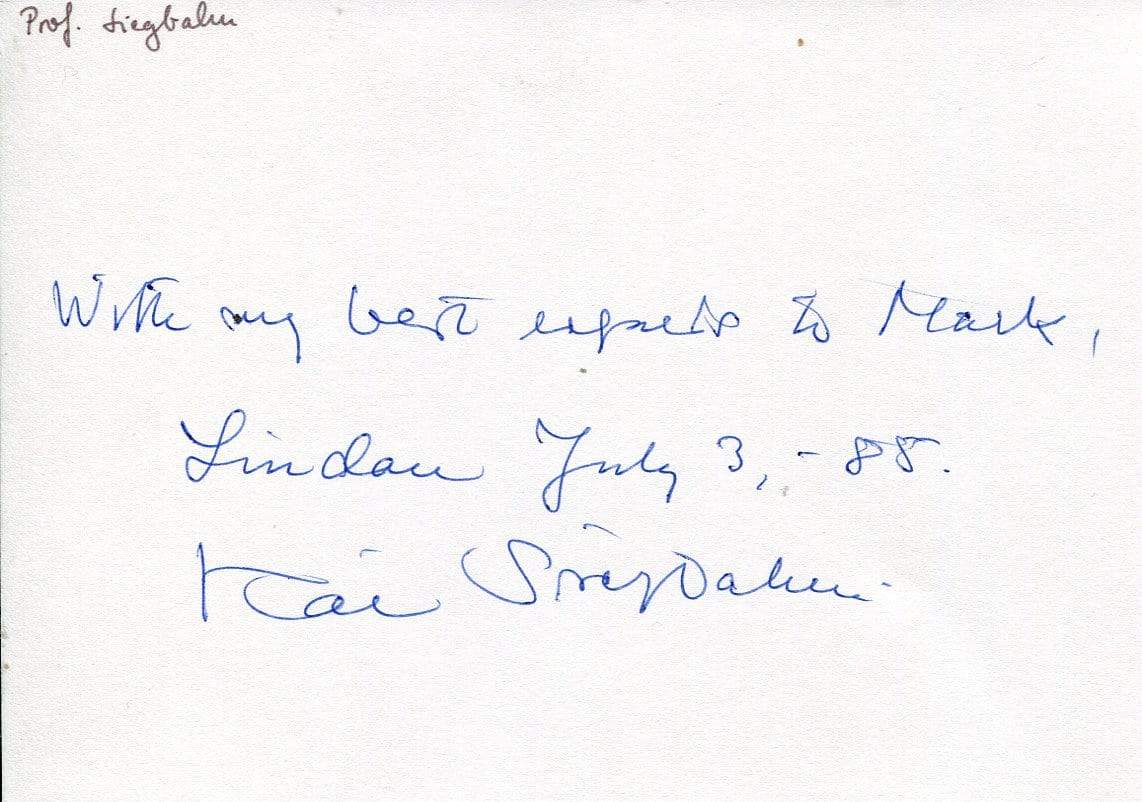 Prof. Siegbahn
With my best regards to Mark,
Lindau July 3, - 88.
Kai Siegbahn